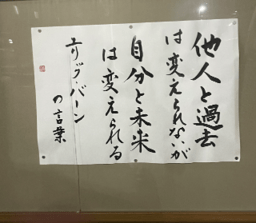 他人と過去
は変えられないが
自分と未来
は変えられる
エリック・バーン
の言葉